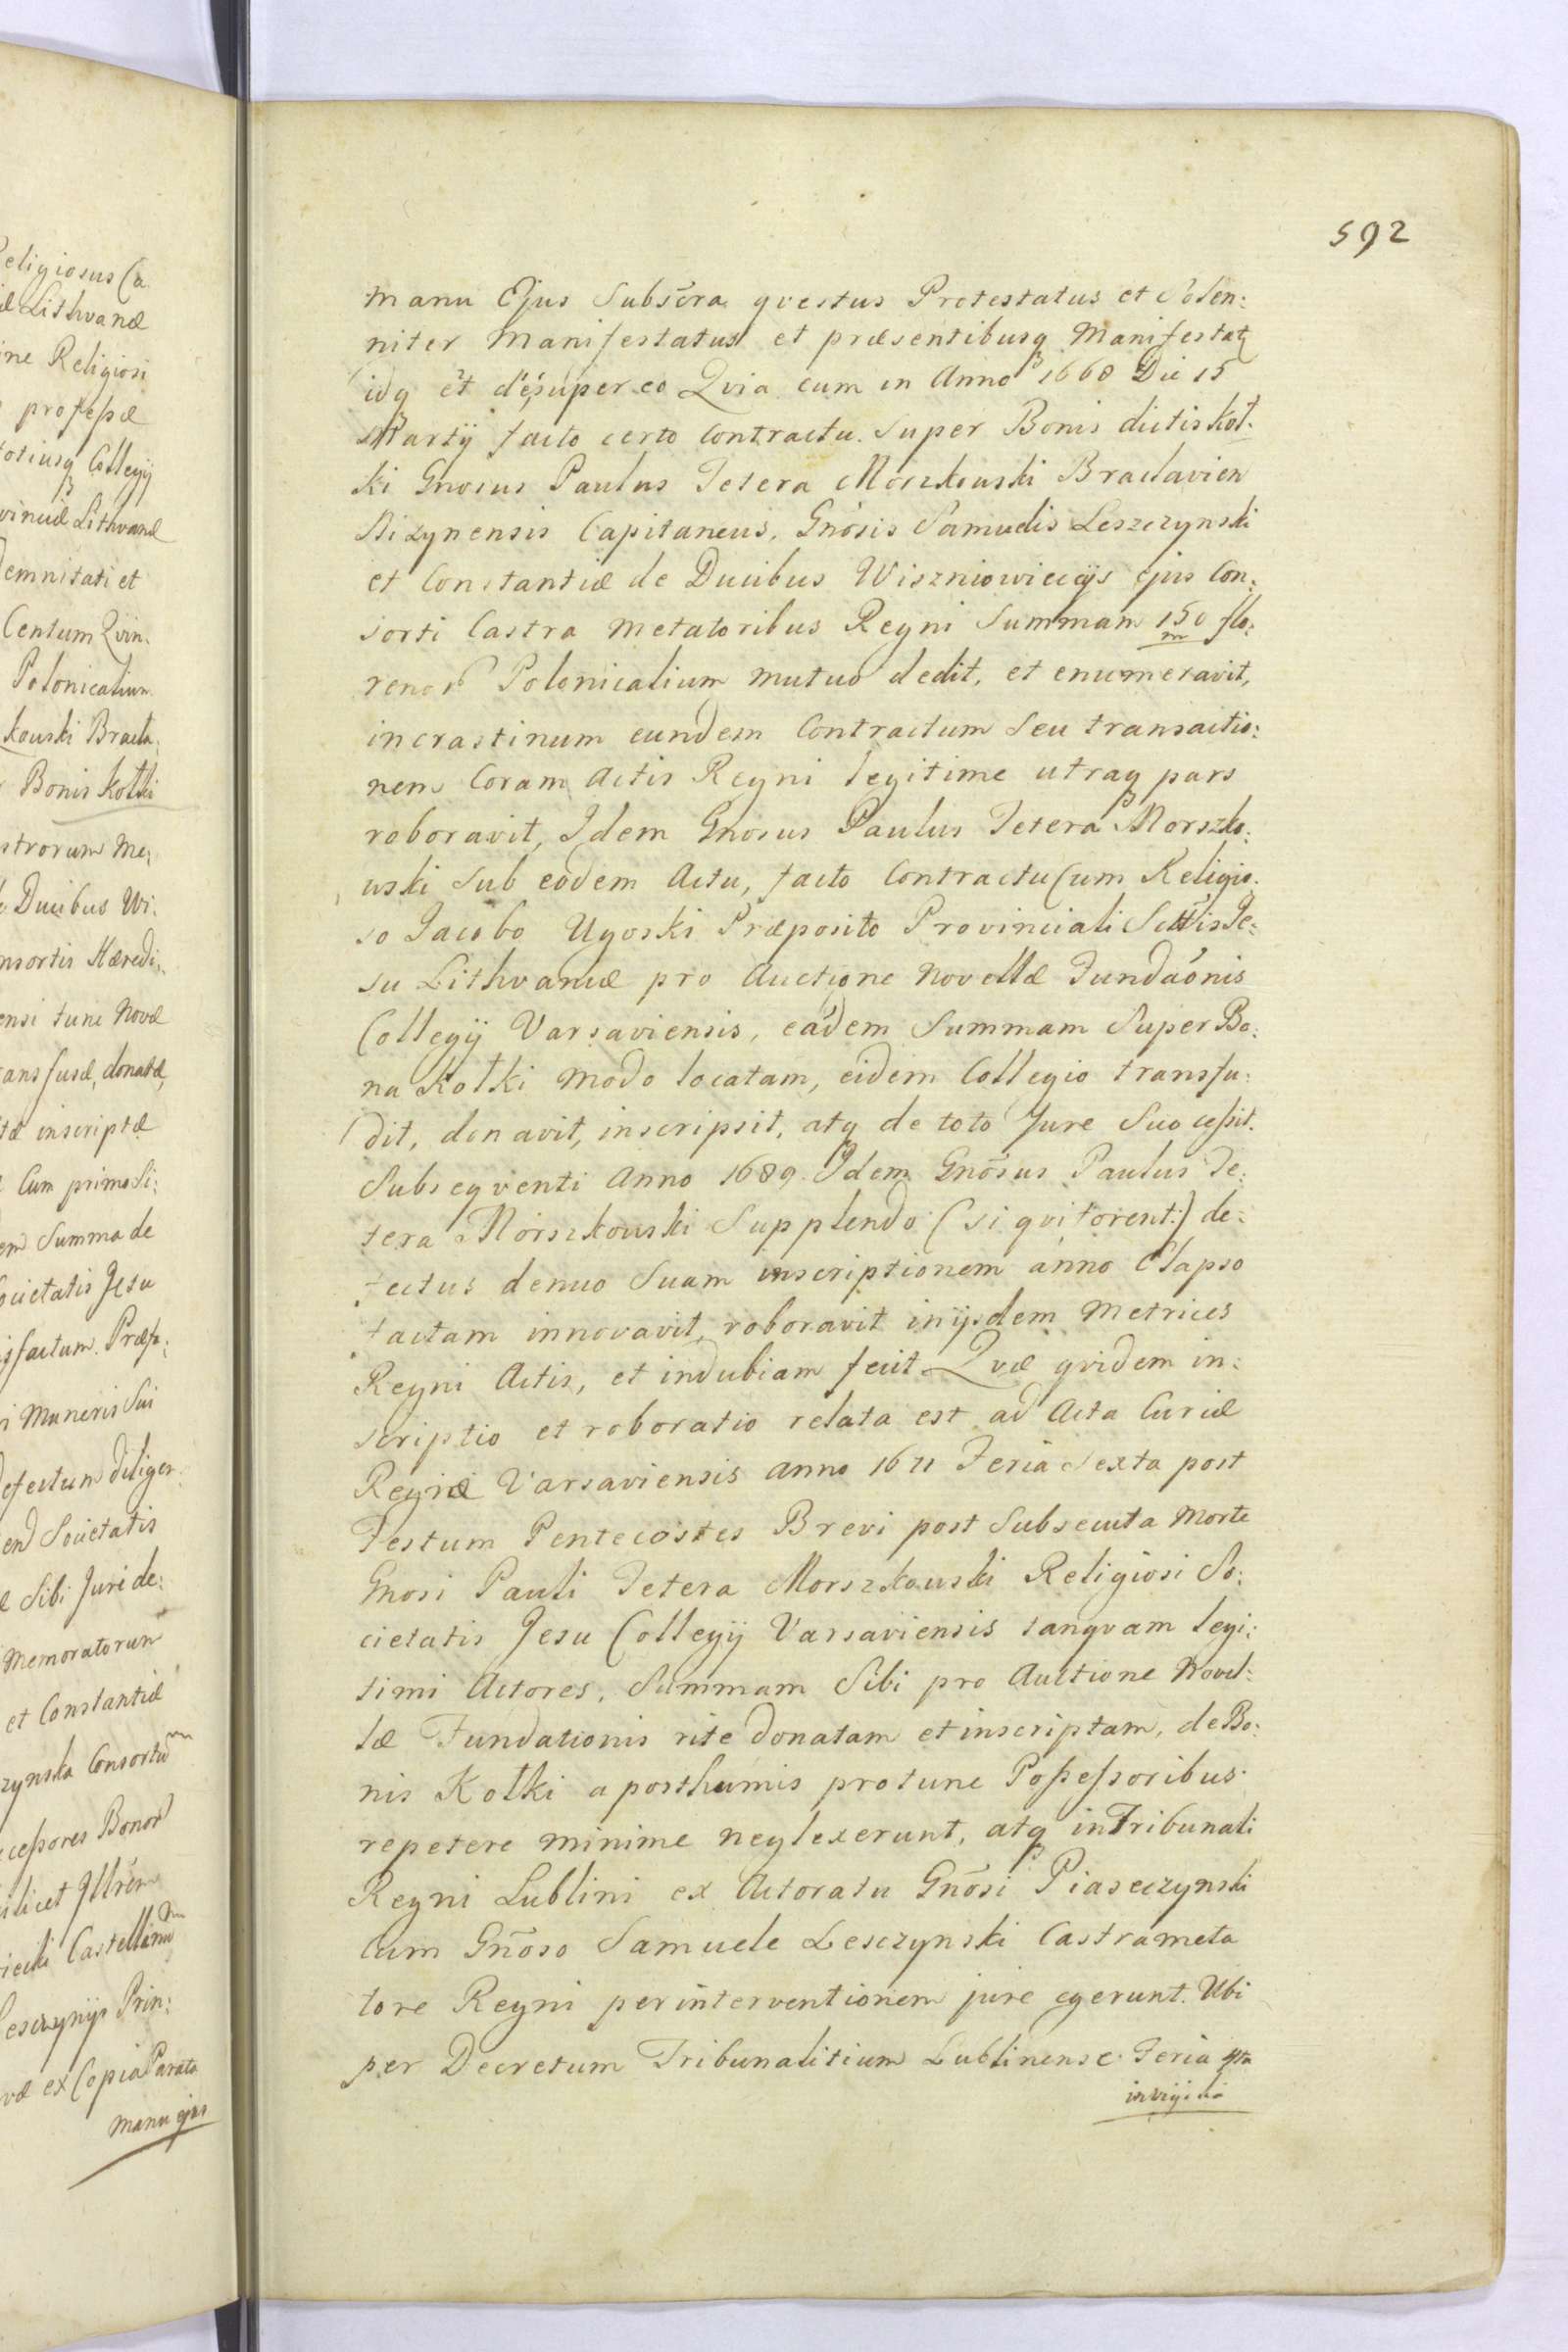 eligiosus Ca
æ Lithvanæ
ine Religiosi
profeßæ
totiusq Collegÿ
vinciæ Lithvanæ
demnitati et
Centum Qvin:
Polonicalium
kowski Bracla:
Bonis Kołki
strorum Me:
Ducibus Wi:
nsortis Hæredi:
ensi tunc Novæ
ansfusæ, donatæ,
tæ inscriptæ
Cum primo Si:
em Summa de
ocietatis Jesu
isfactum. Præfa:
i Muneris Sui
defectum diligen
end Societatis
e Sibi Juri de:
Memoratorum
et Constantiæ
zynska Consortu
ceßores Bonor
ilicet Jllrem
iecki Castellanu
Lesczynÿs Prin:
væ ex Copia Parata
manu ejus
592
manu Ejus Subscra qvestus Protestatus et Solen:
niter Manifestatus et præsentibusq Manifestatq
idq et desuper eo Qvia cum in Anno 1668 Die 15
Martÿ facto certo Contractu Super Bonis dictis Koł:
ki Gnosus Paulus Tetera Morszkowski Braclavien
Nizynensis Capitaneus, Gnosis Samuelis Leszczynski
et Constantiæ de Ducibus Wiszniowiecÿs ejus Con:
sorti Castra Metatoribus Regni Summam 150 flo:
m
renor Polonicalium mutuo dedit, et enumeravit,
incrastinum eundem Contractum Seu transactio:
nem Coram Actis Regni legitime utraq pars
roboravit, Idem Gnosus Paulus Tetera Morszko:
wski Sub eodem Actu, facto Contractu Cum Religio:
so Jacobo Ugoski Præposito Provinciali Sttis Je:
su Lithvaniæ pro Auctione Novellæ Fundaonis
Collegÿ Varsaviensis, eadem Summam Super Bo:
na Kołki modo locatam, eidem Collegio transfu:
dit, donavit, inscripsit, atq de toto Jure Suo ceßit.
Subseqventi Anno 1689. Idem Gnosus Paulus Te:
tera Morszkowski Supplendo (si qvi forent:) de:
fectus denuo Suam inscriptionem anno Elapso
factam innovavit, roboravit in ÿsdem Metrices
Regni Actis, et indubiam fecit. Qvæ qvidem in:
scriptio et roboratio relata est ad Acta Curiæ
Regiæ Varsaviensis Anno 1671 Feria Sexta post
Festum Pentecostes Brevi post Subsecuta Morte
Gnosi Pauli Tetera Morszkowski Religiosi So:
cietatis Jesu Collegÿ Varsaviensis tanqvam legi:
timi Actores, Summam Sibi pro Auctione Novel:
læ Fundationis rite donatam et inscriptam, de Bo:
nis Kołki a posthumis protunc Poßeßoribus
repetere minime neglexerunt, atq in Tribunali
Regni Lublini ex Actoratu Gnosi Piaseczynski
Cum Gnoso Samuele Lesczynski Castrameta
tore Regni per interventionem jure egerunt. Ubi
per Decretum Tribunalitium Lublinense Feria 4ta
in vigilia